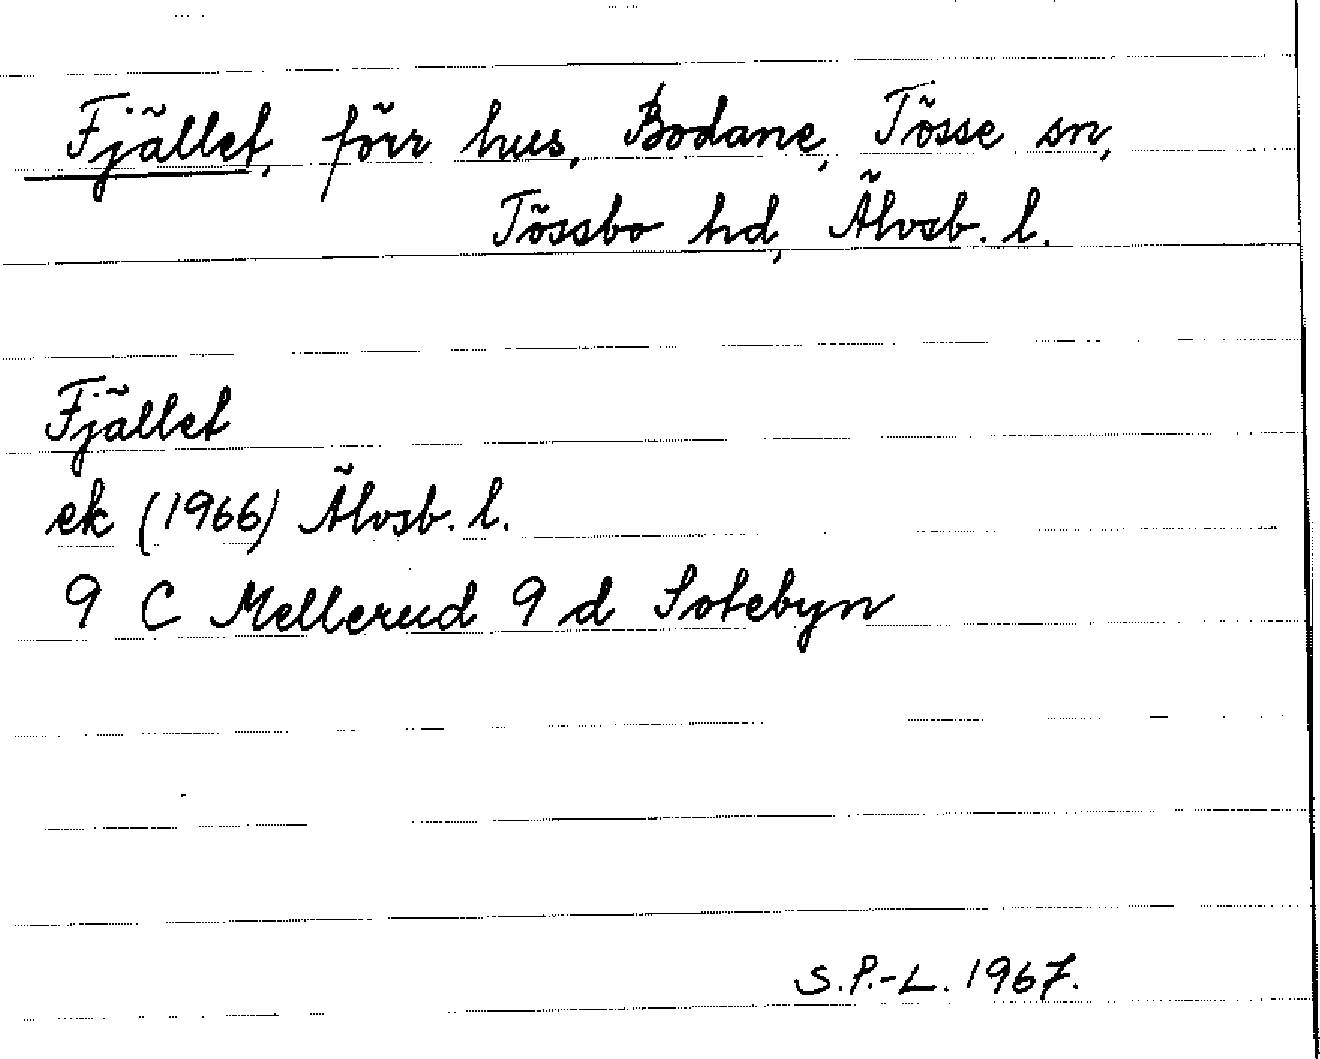 Fjället, förr hus, Bodane, Tösse sn,
Tössbo hd, Älvsb. l.
Fjället
ek (1966) Älvsb. l.
9 C Mellerud 9 d Sotebyn
S.P.-L. 1967.